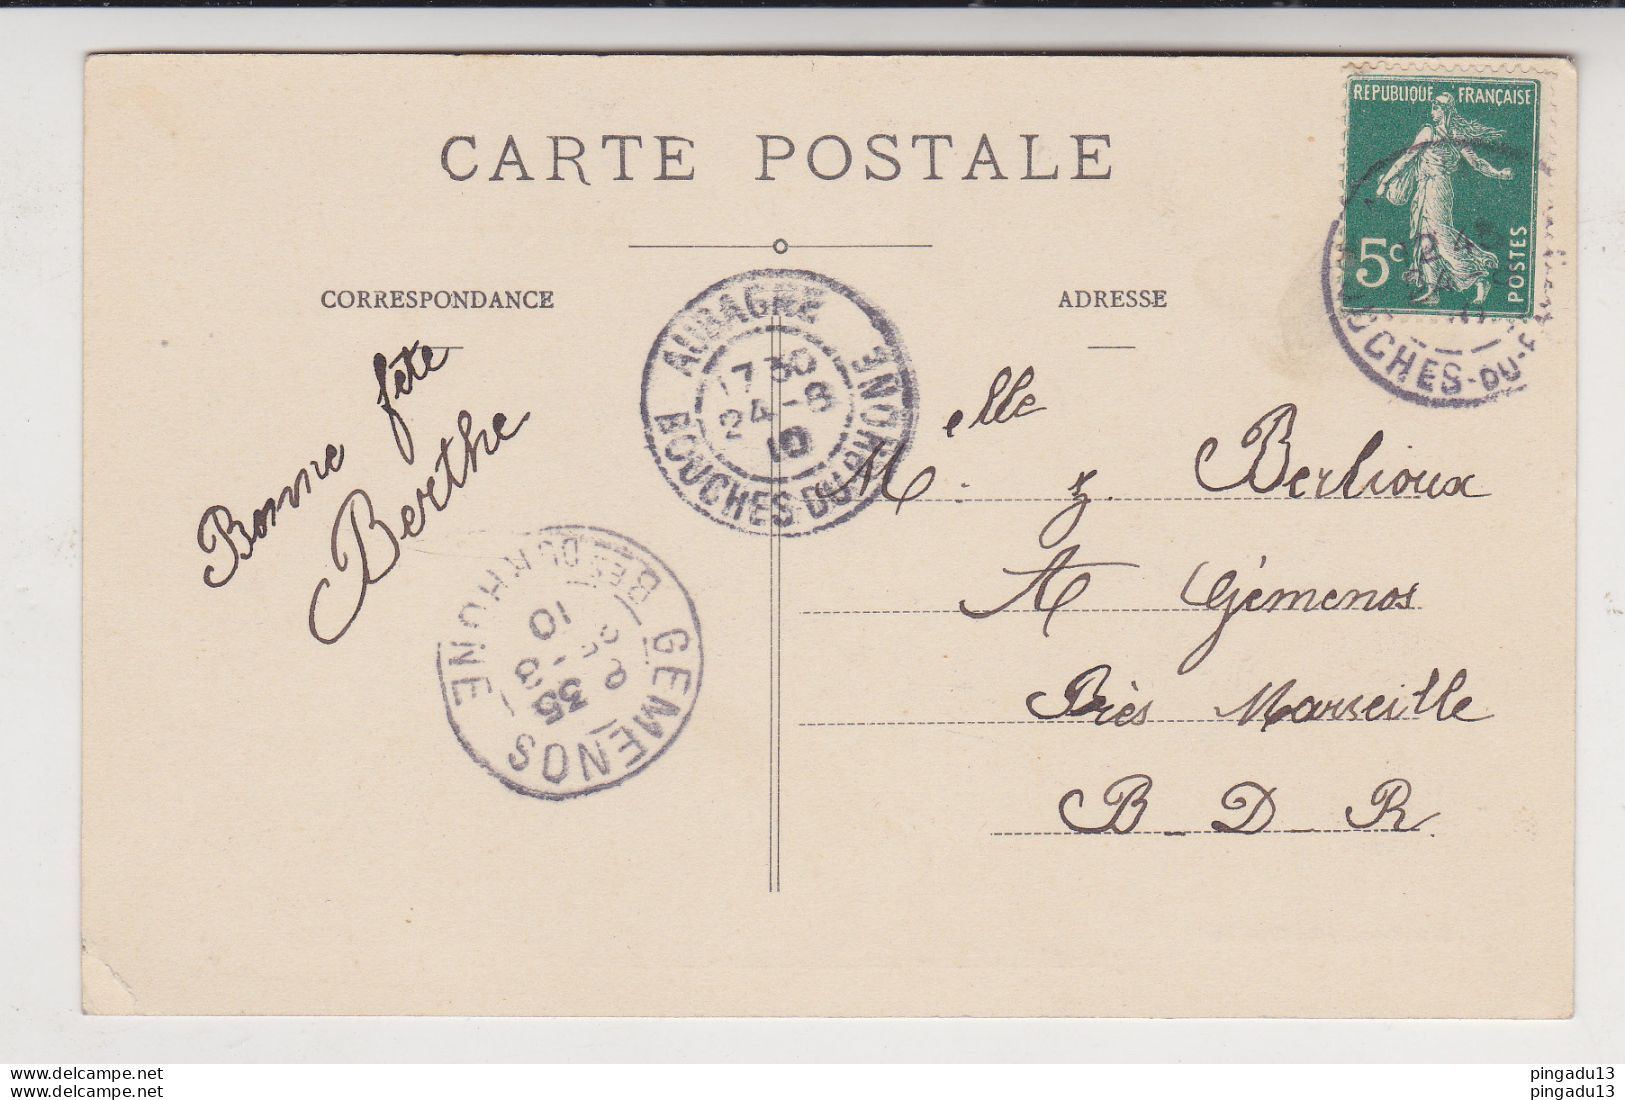 CARTE POSTALE
CORRESPONDANCE
ADRESSE
REPUBLIQUE FRANÇAISE
5c
POSTES
BOUCHES-DU-R
AUBAGNE
17 30
24 - 8
10
BOUCHES-DU-RHONE
Bonne fête
Berthe
GEMENOS
BES DU RHONE
35
10
Melle z. Berlioux
A Gémenos
Près Marseille
B_D_R.
www.delcampe.net
www.delcampe.net
pingadu13
pingadu13